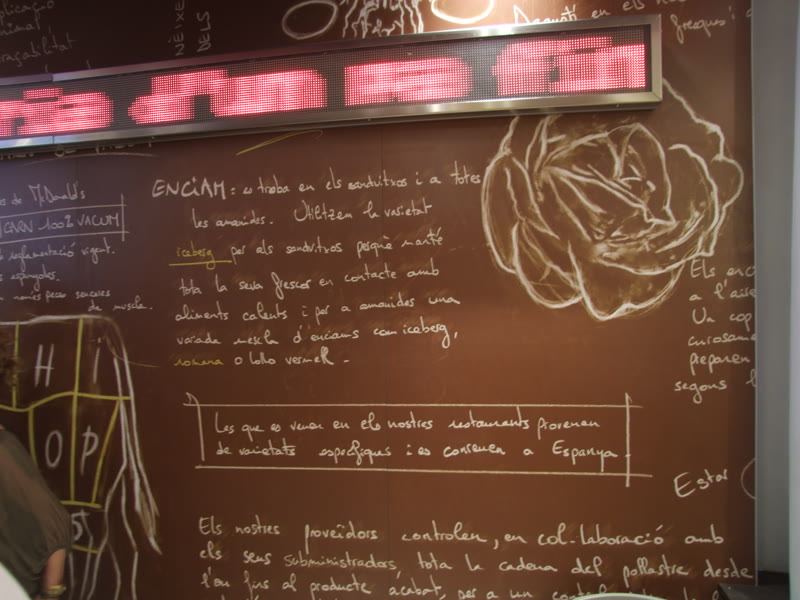 NEIXE
DELS
traçabilitat
en els
fresques i
d'un
ENCIAM: es troba en els sandvitxos i a totes
les amanides. Utilitzem la varietat
iceberg per als sandvitxos perquè manté
tota la seva frescor en contacte amb
aliments calents i per a amanides una
variada mescla d'enciams com iceberg,
romana o lollo vermell.
os de McDonald's
CARN 100% VACUM
reglamentació vigent.
espanyoles.
només peces senceres
de muscle.
H i
O P
Les que es venen en els nostres restaurants provenen
de varietats específiques i es conreuen a Espanya.
Els
a l'
Un cop
curosame
preparen
segons l
Estor
Els nostres proveïdors controlen, en col·laboració amb
els seus subministradors, tota la cadena del pollastre desde
l'ou fins al producte acabat, per a un